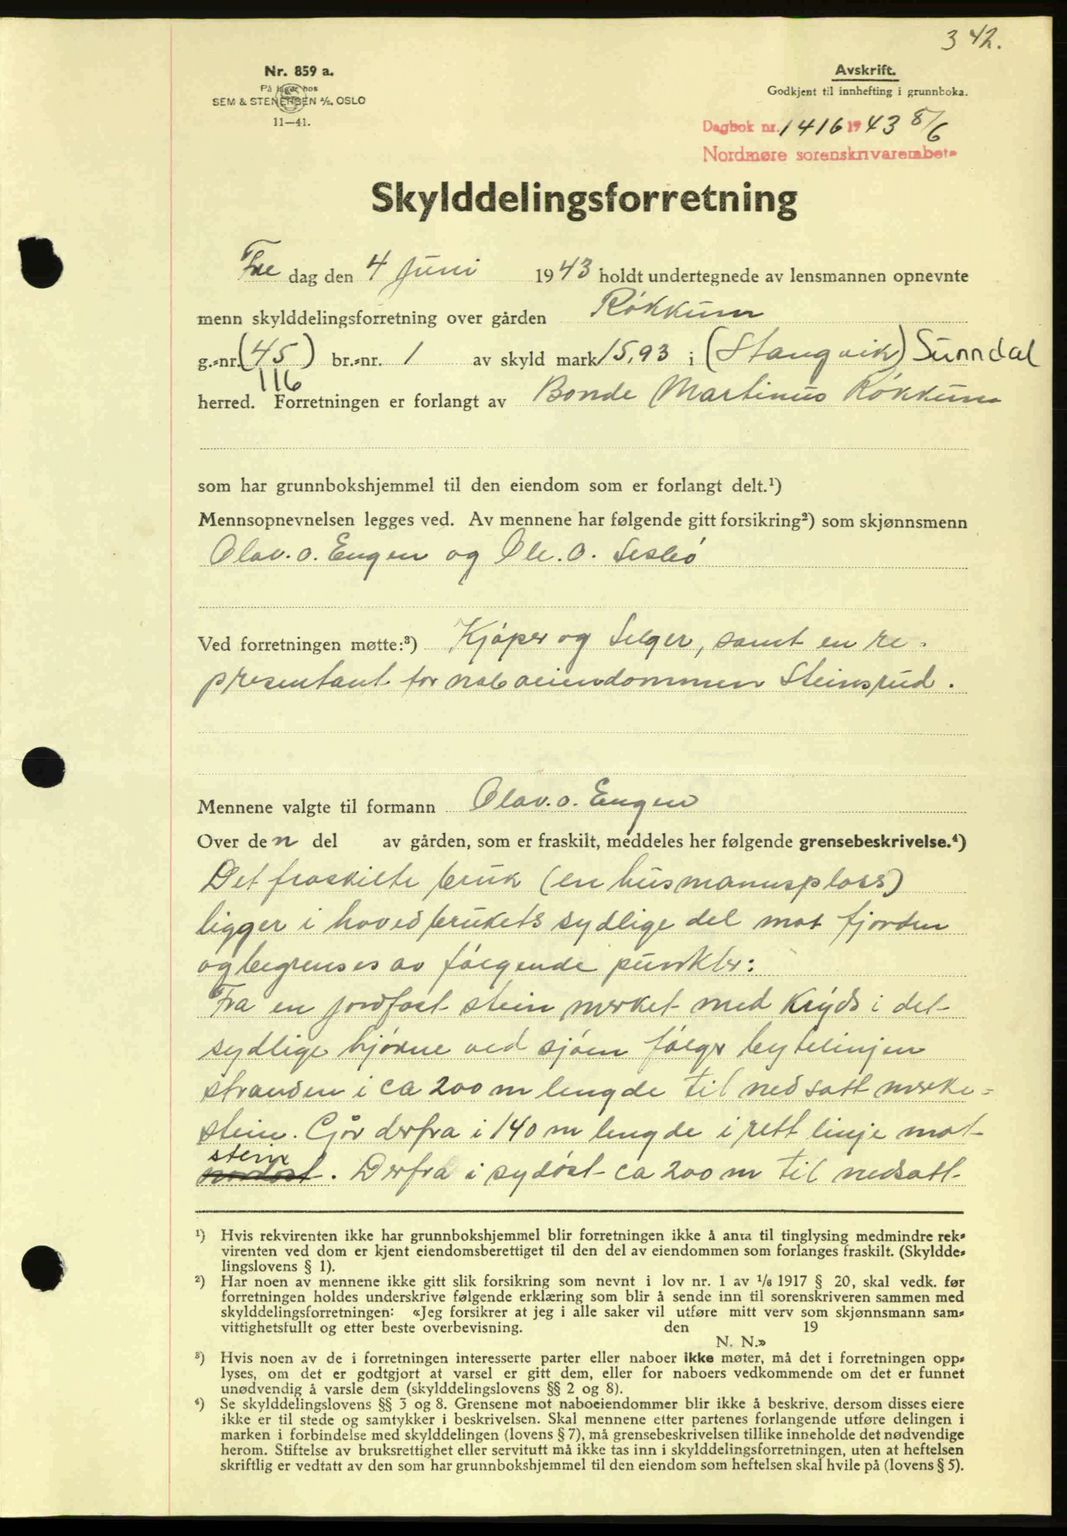 342.
Nr. 859 a.
På lager hos
SEM & STENERSEN A/S, OSLO
11—41.
Avskrift.
Godkjent til innhefting i grunnboka.
Dagbok nr. 1416 1943 8/6
Nordmøre sorenskriverembete
Skylddelingsforretning
Fre dag den 4 Juni 1943 holdt undertegnede av lensmannen opnevnte
menn skylddelingsforretning over gården Røkkum
g.-nr. (45) br.-nr. 1 av skyld mark 15,93 i (Stangvik) Sunndal
116
herred. Forretningen er forlangt av Bonde Martinus Røkkum
som har grunnbokshjemmel til den eiendom som er forlangt delt.¹)
Mennsopnevnelsen legges ved. Av mennene har følgende gitt forsikring²) som skjønnsmenn
Olav. O. Engen og Ole. O.
Ved forretningen møtte:³) Kjøper og Selger, samt en re-
presentant for naboeiendommen Steinsrud.
Mennene valgte til formann Olav. O. Engen
Over den del av gården, som er fraskilt, meddeles her følgende grensebeskrivelse.⁴)
Det fraskilte bruk (en husmannsplass)
ligger i hovedbrukets sydlige del mot fjorden
og begrenses av følgende punkter:
Fra en jordfast stein merket med kryds i det
sydlige hjørne ved sjøen følger bytelinjen
stranden i ca 200 m lengde til nedsatt merke-
stein. Går derfra i 140 m lengde i rett linje mot
stein
nordost. Derfra i sydøst ca 200 m til nedsatt
¹) Hvis rekvirenten ikke har grunnbokshjemmel blir forretningen ikke å anta til tinglysing medmindre rek-
virenten ved dom er kjent eiendomsberettiget til den del av eiendommen som forlanges fraskilt. (Skyldde-
lingslovens § 1).
²) Har noen av mennene ikke gitt slik forsikring som nevnt i lov nr. 1 av 1/6 1917 § 20, skal vedk. før
forretningen holdes underskrive følgende erklæring som blir å sende inn til sorenskriveren sammen med
skylddelingsforretningen: «Jeg forsikrer at jeg i alle saker vil utføre mitt verv som skjønnsmann sam-
vittighetsfullt og etter beste overbevisning. den 19
N. N.»
³) Hvis noen av de i forretningen interesserte parter eller naboer ikke møter, må det i forretningen opp-
lyses, om det er godtgjort at varsel er gitt dem, eller for naboers vedkommende om det er funnet
unødvendig å varsle dem (skylddelingslovens §§ 2 og 8).
⁴) Se skylddelingslovens §§ 3 og 8. Grensene mot naboeiendommer blir ikke å beskrive, dersom disses eiere
ikke er til stede og samtykker i beskrivelsen. Skal mennene etter partenes forlangende utføre delingen i
marken i forbindelse med skylddelingen (lovens § 7), må grensebeskrivelsen tillike inneholde det nødvendige
herom. Stiftelse av bruksrettighet eller servitutt må ikke tas inn i skylddelingsforretningen, uten at heftelsen
skriftlig er vedtatt av den som har grunnbokshjemmel til den eiendom som heftelsen skal hvile på (lovens § 5).